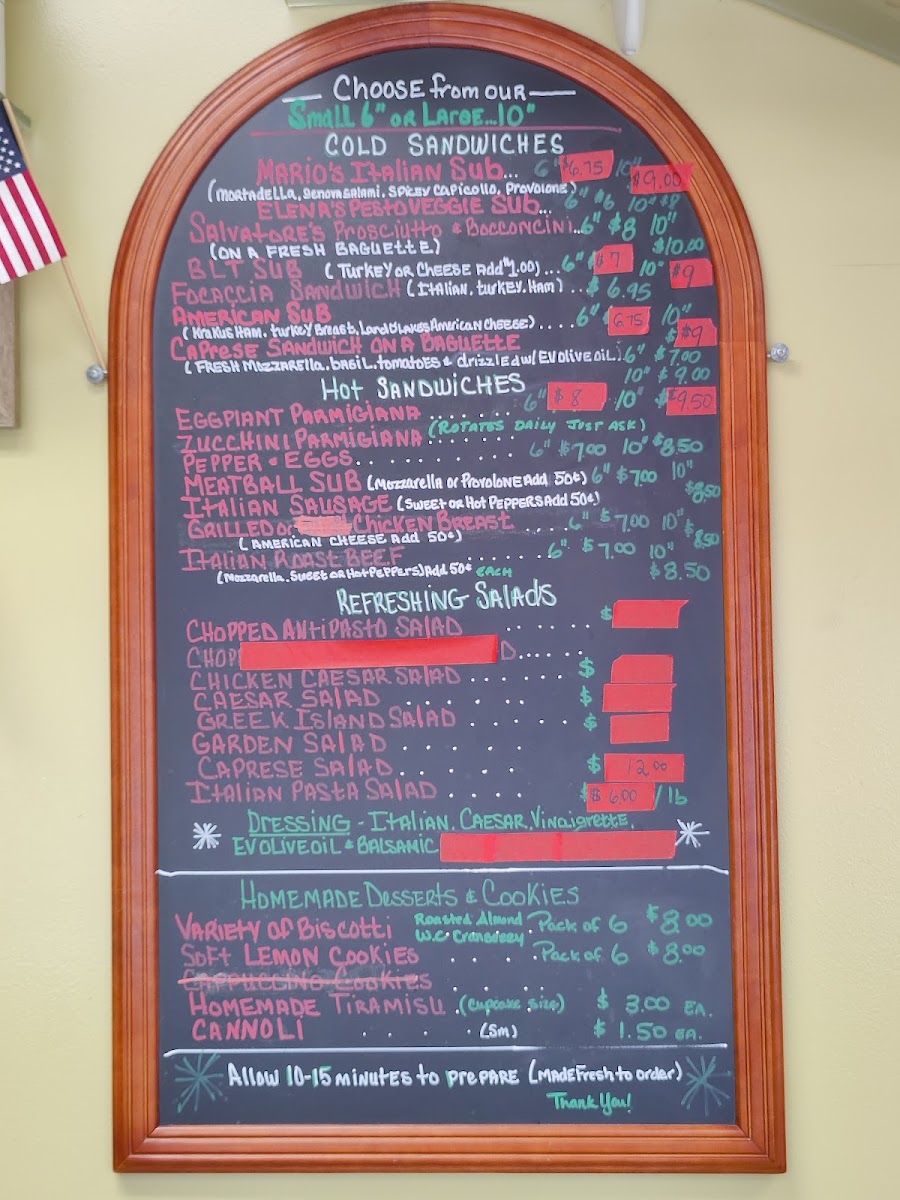 Choose from our
Small 6" or Large...10"
COLD SANDWICHES
MARIO'S ITALIAN SUB... 6" $6.75 10" $9.00
(MORTADELLA, GENOVA SALAMI, SPICEY CAPICOLLO, PROVOLONE)
ELENA'S PESTO VEGGIE SUB... 6" $6 10" $8
SALVATORE'S PROSCIUTTO & BOCCONCINI... 6" $8 10"
(ON A FRESH BAGUETTE) $10.00
BLT SUB (TURKEY OR CHEESE Add $1.00)... 6" $7 10" $9
FOCACCIA SANDWICH (ITALIAN, turkey, HAM) ... $6.95
AMERICAN SUB 6" 6.75 10"
(KRAKUS HAM, turkey Breast, Land O Lakes American Cheese) .... $9
CAPRESE SANDWICH ON A BAGUETTE
(FRESH Mozzarella, basil, tomatoes & drizzled w/ EV olive oil) 6" $7.00
10" $9.00
HOT SANDWICHES
EGGPLANT PARMIGIANA ...... 6" $8 10" $9.50
(ROTATES DAILY JUST ASK)
ZUCCHINI PARMIGIANA .......
PEPPER & EGGS.......... 6" $7.00 10" $8.50
MEATBALL SUB (Mozzarella or Provolone Add 50¢) 6" $7.00 10"
$8.50
ITALIAN SAUSAGE (SWEET OR HOT PEPPERS Add 50¢)
GRILLED or CHICKEN BREAST .... 6" $7.00 10" $8.50
(AMERICAN CHEESE Add 50¢)
ITALIAN ROAST BEEF ....... 6" $7.00 10"
(Mozzarella, Sweet or Hot Peppers) Add 50¢ EACH $8.50
REFRESHING SALADS
CHOPPED ANTIPASTO SALAD ...... $
CHOP D......
CHICKEN CAESAR SALAD ...... $
CAESAR SALAD ...... $
GREEK ISLAND SALAD ...... $
GARDEN SALAD ....
CAPRESE SALAD..... $ 12.00
ITALIAN PASTA SALAD .... $ $6.00 / lb
DRESSING - ITALIAN, CAESAR, Vinaigrette,
EV OLIVE OIL & BALSAMIC
HOMEMADE DESSERTS & COOKIES
VARIETY OF BISCOTTI Roasted Almond W.C Cranberry . Pack of 6 $8.00
SOFT LEMON COOKIES .... Pack of 6 $8.00
CAPPUCCINO COOKIES ....
HOMEMADE TIRAMISU .(cupcake size) $ 3.00 EA.
CANNOLI ..... (Sm) $ 1.50 EA.
ALLOW 10-15 MINUTES TO PREPARE (MADE FRESH to order)
Thank You!